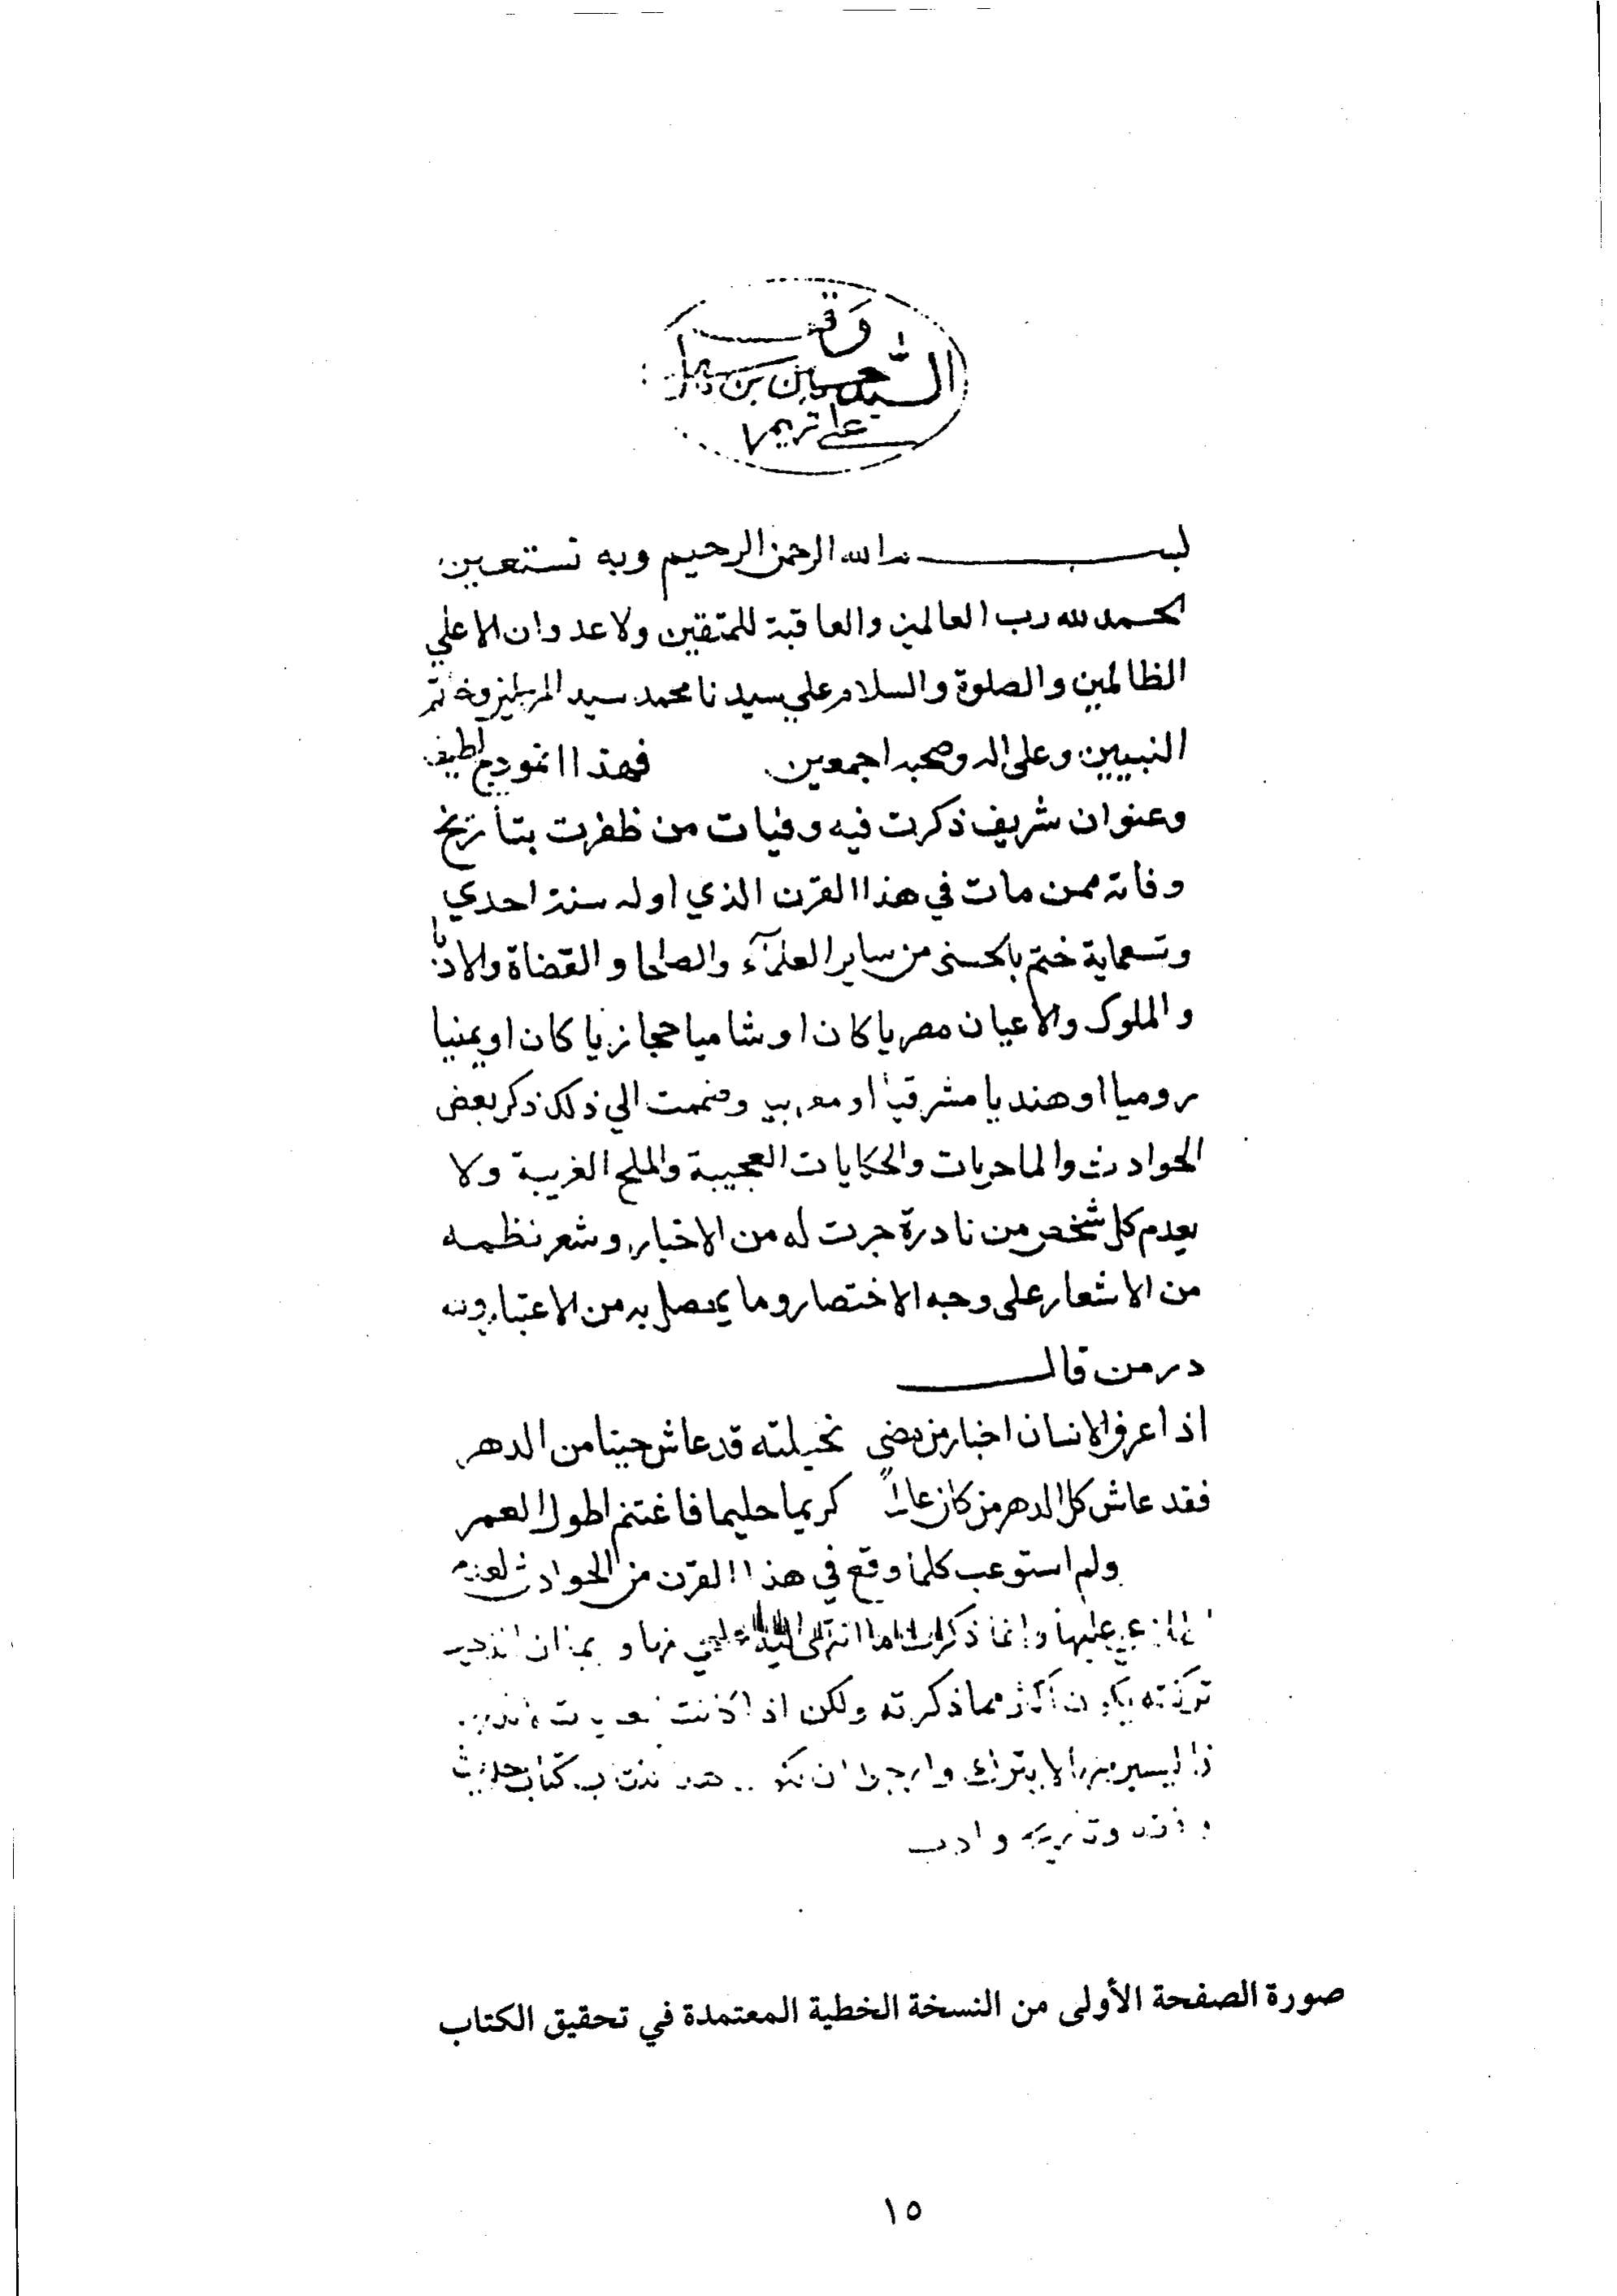 وقف
السيد حسين بن سهل
على تريم
بسم الله الرحمن الرحيم وبه نستعين
الحمد لله رب العالمين والعاقبة للمتقين ولا عدوان الا علي
الظالمين والصلوة والسلام علي سيدنا محمد سيد المرسلين وخاتم
النبيين وعلى اله وصحبه اجمعين فهذا انموذج لطيف
وعنوان شريف ذكرت فيه وفيات من ظفرت بتأريخ
وفاته ممن مات في هذا القرن الذي اوله سنة احدي
وتسعماية ختم بالحسنى من ساير العلمآء والصلحا والقضاة والادبا
والملوك والاعيان مصريا كان او شاميا حجازيا كان او يمنيا
روميا او هنديا مشرقيا او مغربيا وضممت الي ذلك ذكر بعض
الحوادث والماجريات والحكايات العجيبة والملح الغريبة ولا
يعدم كل شخص من نادرة جرت له من الاخبار وشعر نظمه
من الاشعار على وجه الاختصار وما يحصل به من الاعتبار ولله
در من قال
اذا عرف الانسان اخبار من مضى تخيلته قد عاش حينا من الدهر
فقد عاش كل الدهر من كان عالماً كريما حليما فاغتنم اطول العمر
ولم استوعب كلما وقع في هذا القرن من الحوادث لعدم
عليها وانما ذكرت ما انتهى اليه علمي منها و ان الذي
تركته يكون اكثر مما ذكرته ولكن اذا
اليسير لا يترك وارجو ان كتاب حديث
وفقه وتاريخ وادب
صورة الصفحة الأولى من النسخة الخطية المعتمدة في تحقيق الكتاب
١٥